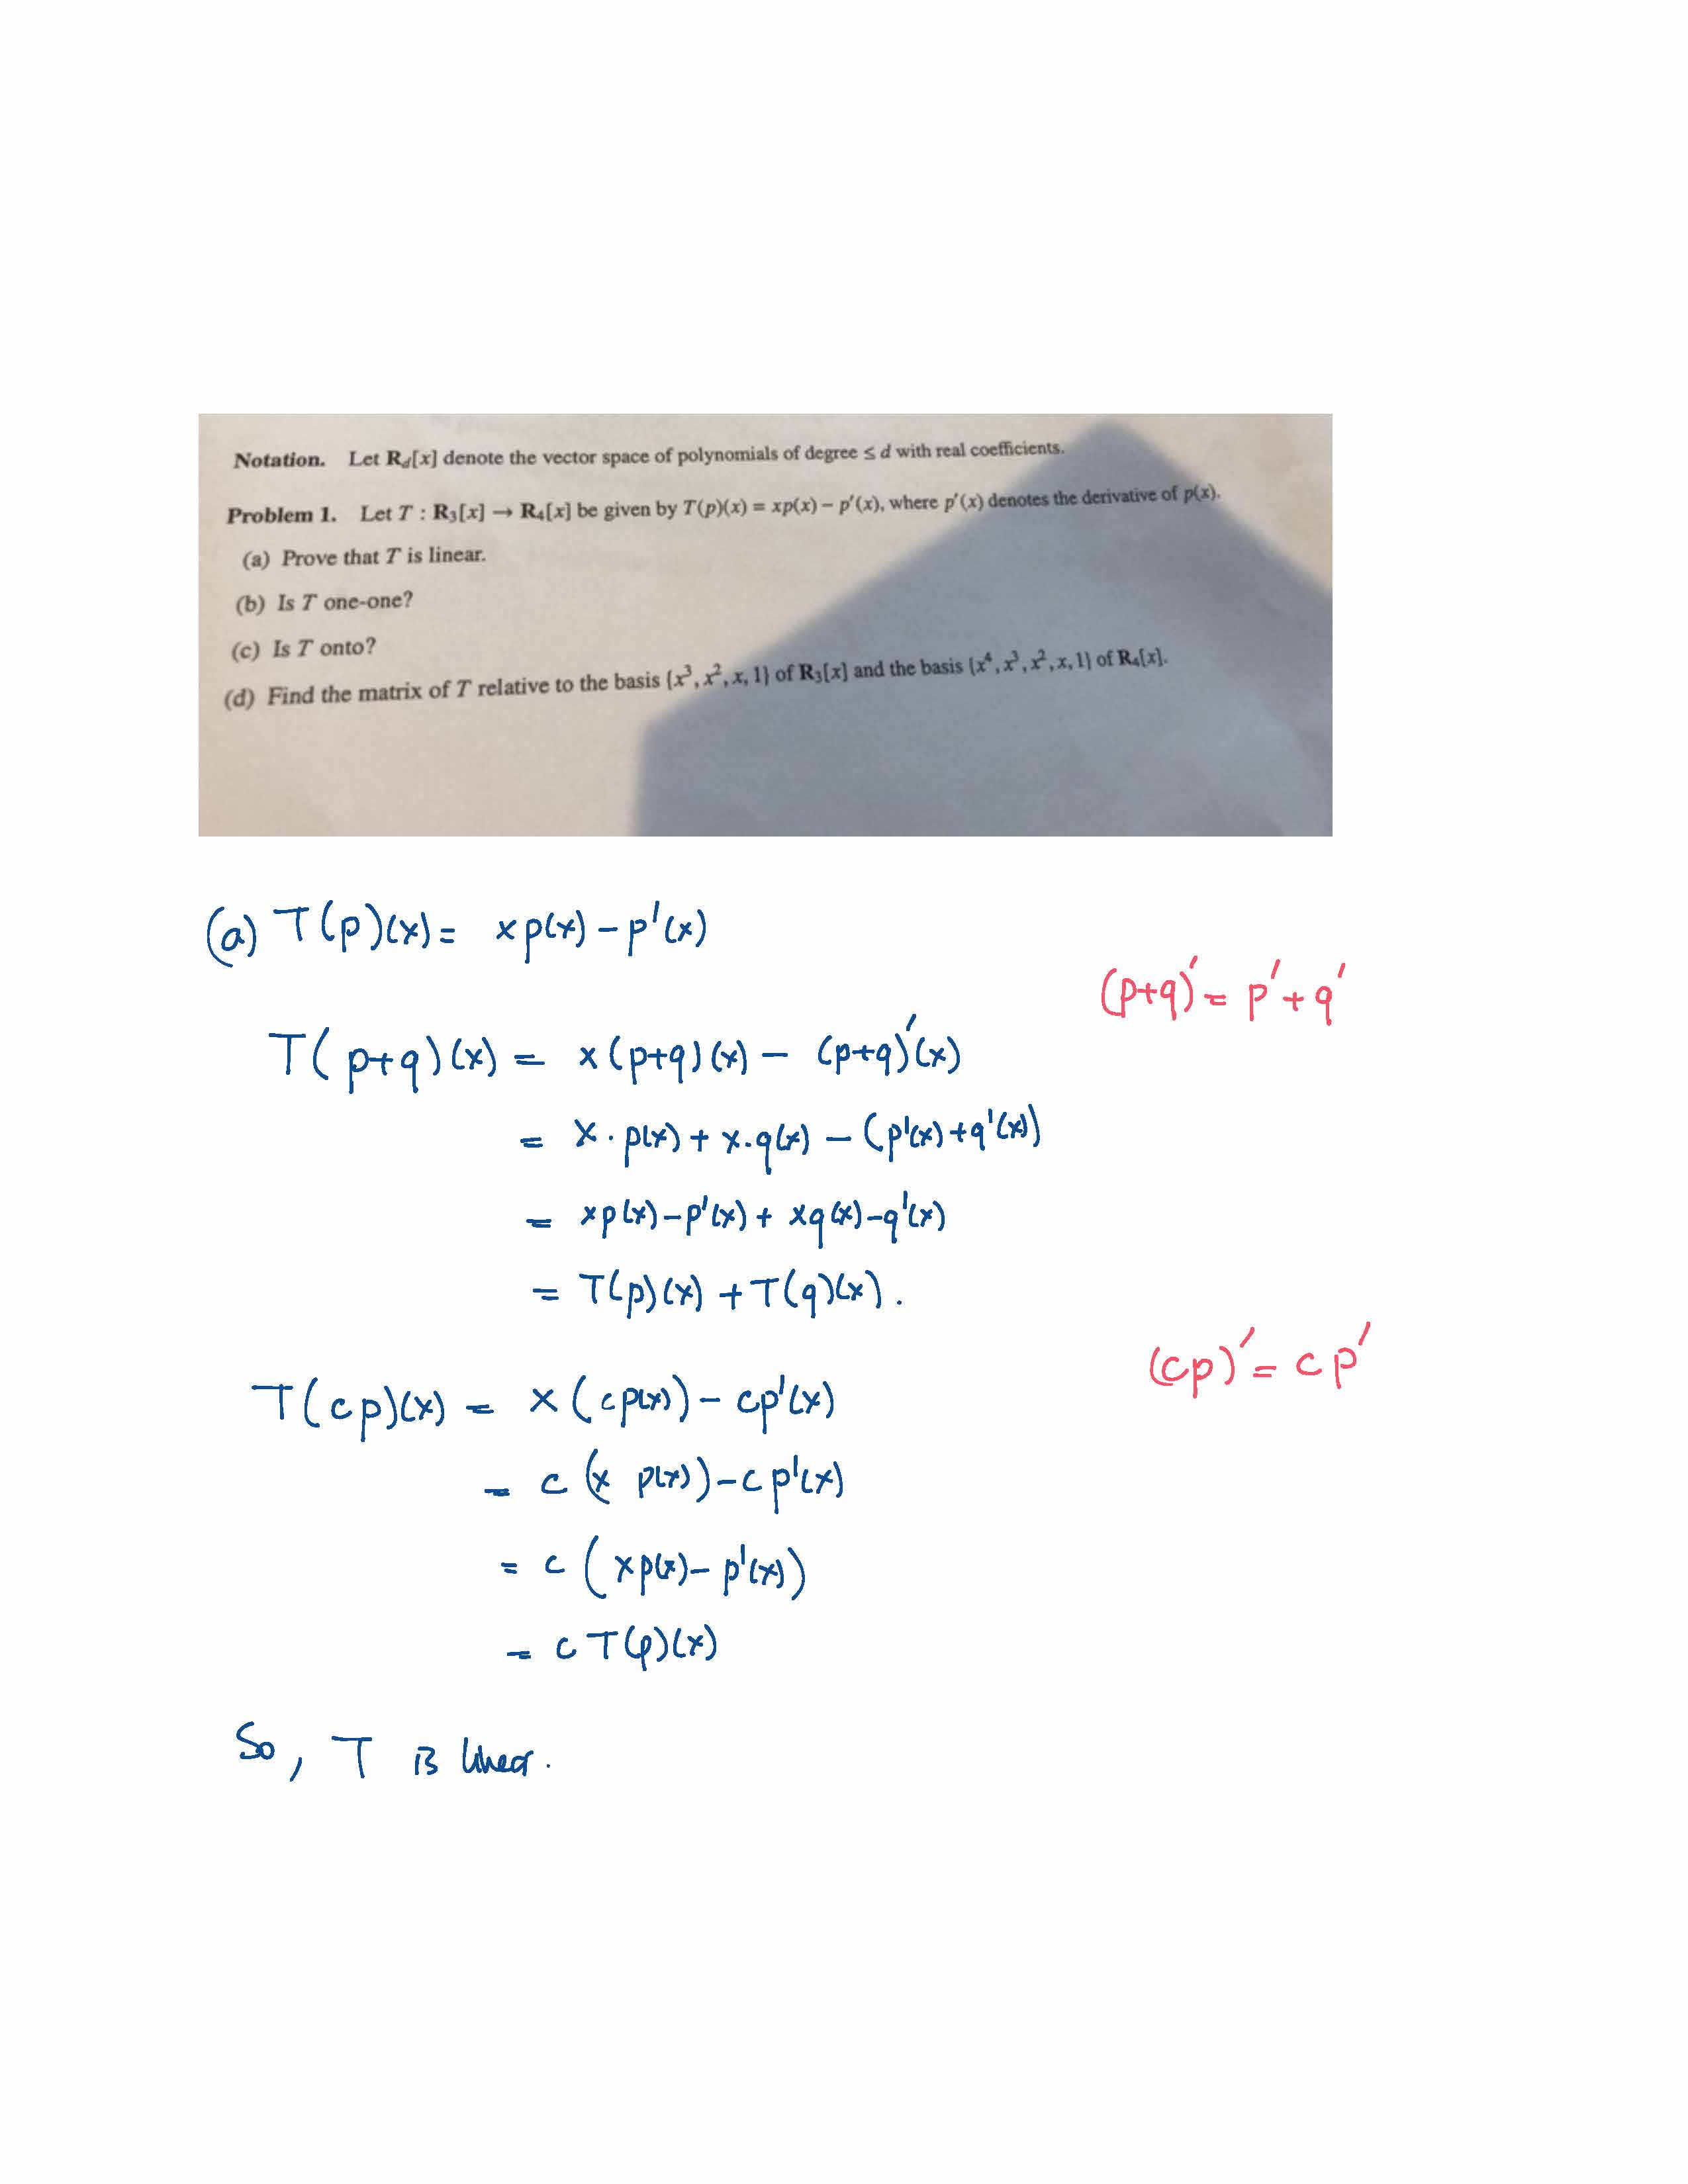 Notation. Let R_d[x] denote the vector space of polynomials of degree ≤ d with real coefficients.
Problem 1. Let T : R₃[x] → R₄[x] be given by T(p)(x) = xp(x) − p′(x), where p′(x) denotes the derivative of p(x).
(a) Prove that T is linear.
(b) Is T one-one?
(c) Is T onto?
(d) Find the matrix of T relative to the basis {x³, x², x, 1} of R₃[x] and the basis {x⁴, x³, x², x, 1} of R₄[x].
(a) T(p)(x) = xp(x) − p′(x)
(p+q)′ = p′ + q′
T(p+q)(x) = x(p+q)(x) − (p+q)′(x)
= x · p(x) + x · q(x) − (p′(x) + q′(x))
= xp(x) − p′(x) + xq(x) − q′(x)
= T(p)(x) + T(q)(x).
(cp)′ = cp′
T(cp)(x) = x(cp(x)) − cp′(x)
= c(x p(x)) − cp′(x)
= c(xp(x) − p′(x))
= cT(p)(x)
So, T is linear.